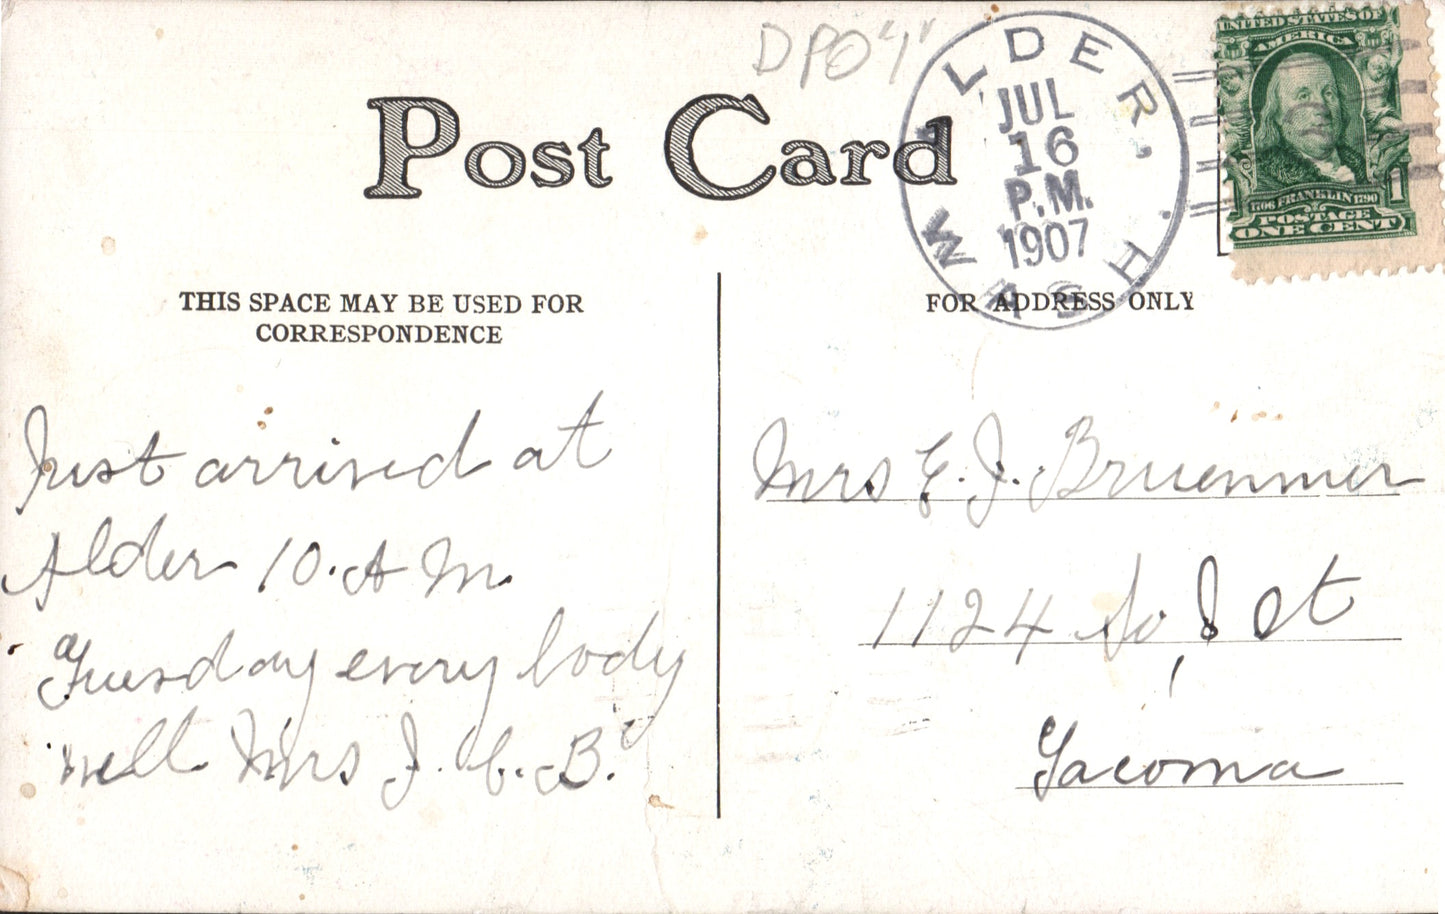 DPO "1"
ALDER.
WASH
JUL
16
P.M.
1907
UNITED STATES OF
AMERICA
1706 FRANKLIN 1790
1
POSTAGE
ONE CENT
Post Card
THIS SPACE MAY BE USED FOR
CORRESPONDENCE
FOR ADDRESS ONLY
Just arrived at
Alder 10. A M.
Tuesday every body
well Mrs J. C. B.
Mrs E. J. Bruenmer
1124 So J St
Tacoma